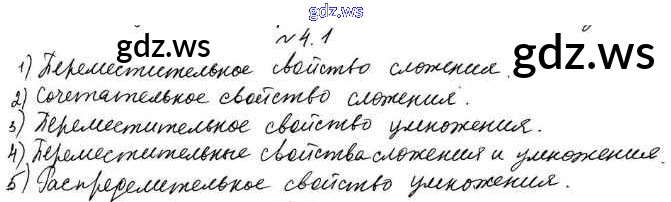 gdz.ws
№4.1
gdz.ws
gdz.ws
1) Переместительное свойство сложения.
2) Сочетательное свойство сложения.
3) Переместительное свойство умножения.
4) Переместительные свойства сложения и умножения.
5) Распределительное свойство умножения.